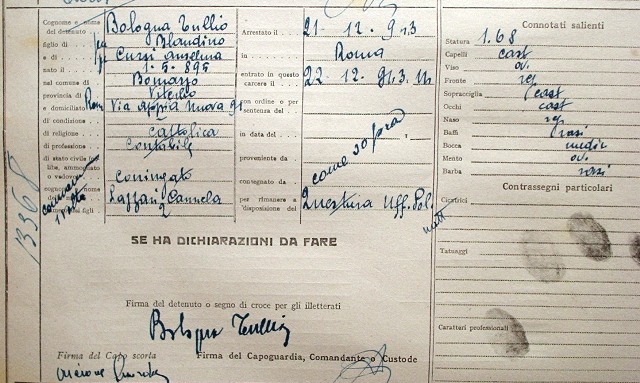 Cognome e nome del detenuto Bologna Tullio
figlio di fu Blandino
e di fu Curzi Anselma
nato il 1.5.895
nel comune di Bomarzo
provincia di Viterbo
e domiciliato Roma Via Appia Nuova 91
di condizione
di religione Cattolica
di professione Contabile
di stato civile
libero, ammogliato o vedovo Coniugato
cognome e nome Lazzari
numero figli 2
13368
Arrestato il 21 - 12. 943
in Roma
entrato in questo carcere il 22 - 12. 943
con ordine o per sentenza del
in data del
proveniente da come sopra
consegnato da
per rimanere a disposizione del Questura Uff. Pol.
Connotati salienti
Statura 1.68
Capelli cast
Viso ov.
Fronte reg
Sopracciglia cast
Occhi cast
Naso reg
Baffi rasi
Bocca media
Mento ov.
Barba rasi
Contrassegni particolari
Cicatrici
Tatuaggi
Caratteri professionali
SE HA DICHIARAZIONI DA FARE
Firma del detenuto o segno di croce per gli illetterati
Bologna Tullio
Firma del Capo scorta
Firma del Capoguardia, Comandante o Custode